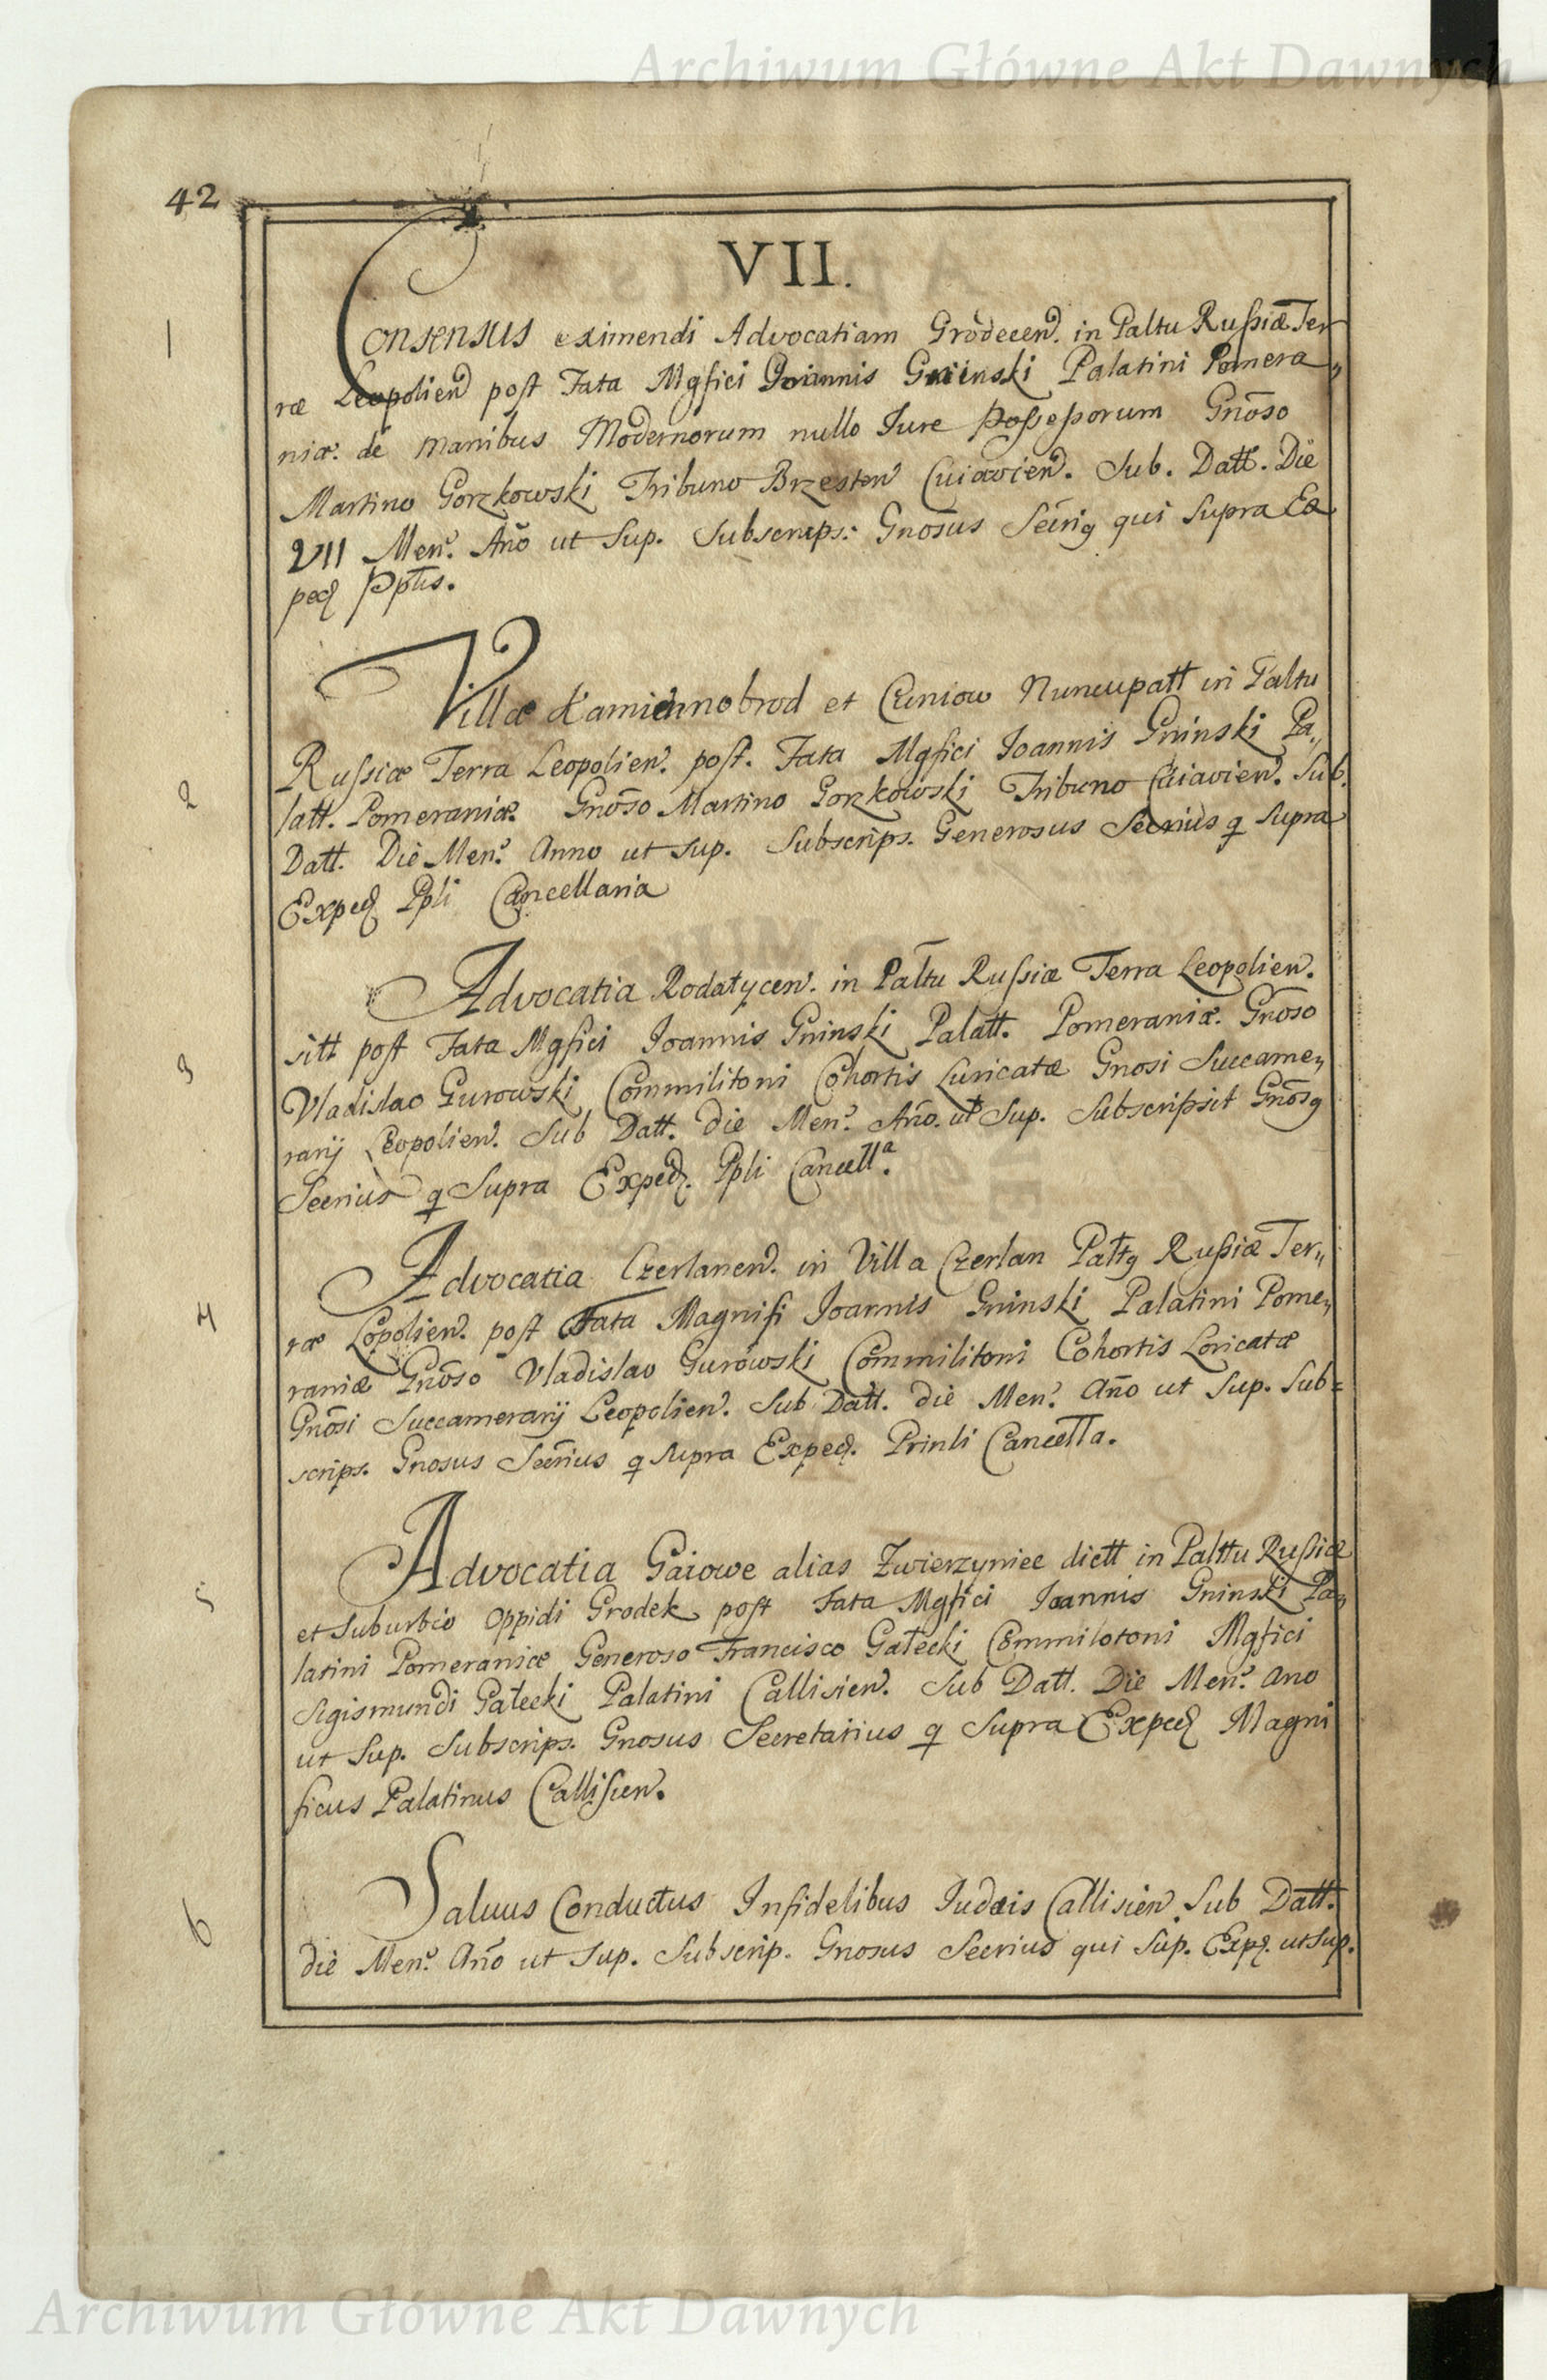 Archiwum Główne Akt Dawnych
42
VII.
1
Consensus eximendi Advocatiam Grodecen. in Paltu Russiæ Ter
ræ Leopolien post Fata Mgfici Joannis Gninski Palatini Pomera„
niæ. de manibus Modernorum nullo Jure Possessorum Gnōso
Martino Gorzkowski Tribuno Brzesten Cuiavien. Sub. Datt. Die
VII Men. Año ut Sup. Subscrips: Gnosus Secrīg qui Supra Ex
ped Pptīs.
Villæ Kamiennobrod et Cuniow Nuncupatt in Paltu
Russiæ Terra Leopolien. post. Fata Mgfici Joannis Gninski Pa„
2
latt. Pomeraniæ. Gnōso Martino Gorzkowski Tribuno Cuiavien. Sub.
Datt. Die Men. Anno ut Sup. Subscrips. Generosus Secrius q Supra
Exped Ppli Cancellaria
Advocatia Rodatycen. in Paltu Russiæ Terra Leopolien.
sitt post Fata Mgfici Joannis Gninski Palatt. Pomeraniæ. Gnōso
3
Vladislao Gurowski Commilitoni Cohortis Luricatæ Gnosi Succame„
rarij Leopolien. Sub Datt. Die Men. Año. ut Sup. Subscripsit Gnōsg
Secrius q Supra Exped. Ppli Cancellª.
Advocatia Czerlanen. in Villa Czerlan Paltg Russiæ Ter„
4
ræ Lopolien. post Fata Magnifi Joannis Gninski Palatini Pome„
raniæ Gnōso Vladislao Gurowski Commilitoni Cohortis Loricatæ
Gnōsi Succamerarij Leopolien. Sub Datt. die Men. Año ut Sup. Sub=
scrips. Gnosus Secrīus q supra Exped. Prinli Cancella.
Advocatia Gaiowe alias Zwierzyniec dictt in Palttu Russiæ
5
et Suburbio oppidi Grodek post Fata Mgfici Joannis Gninski Pa„
latini Pomeraniæ Generoso Francisco Gałecki Commilotoni Mgfici
Sigismundi Gałecki Palatini Callisien. Sub Datt. Die Men. Ano
ut Sup. Subscrips. Gnosus Secretarius q Supra Exped Magni
ficus Palatinus Callisien.
6
Salvus Conductus Infidelibus Judæis Callisien. Sub Datt.
die Men. Año ut Sup. Subscrip. Gnosus Secrius qui Sup. Expd. ut Sup.
Archiwum Główne Akt Dawnych